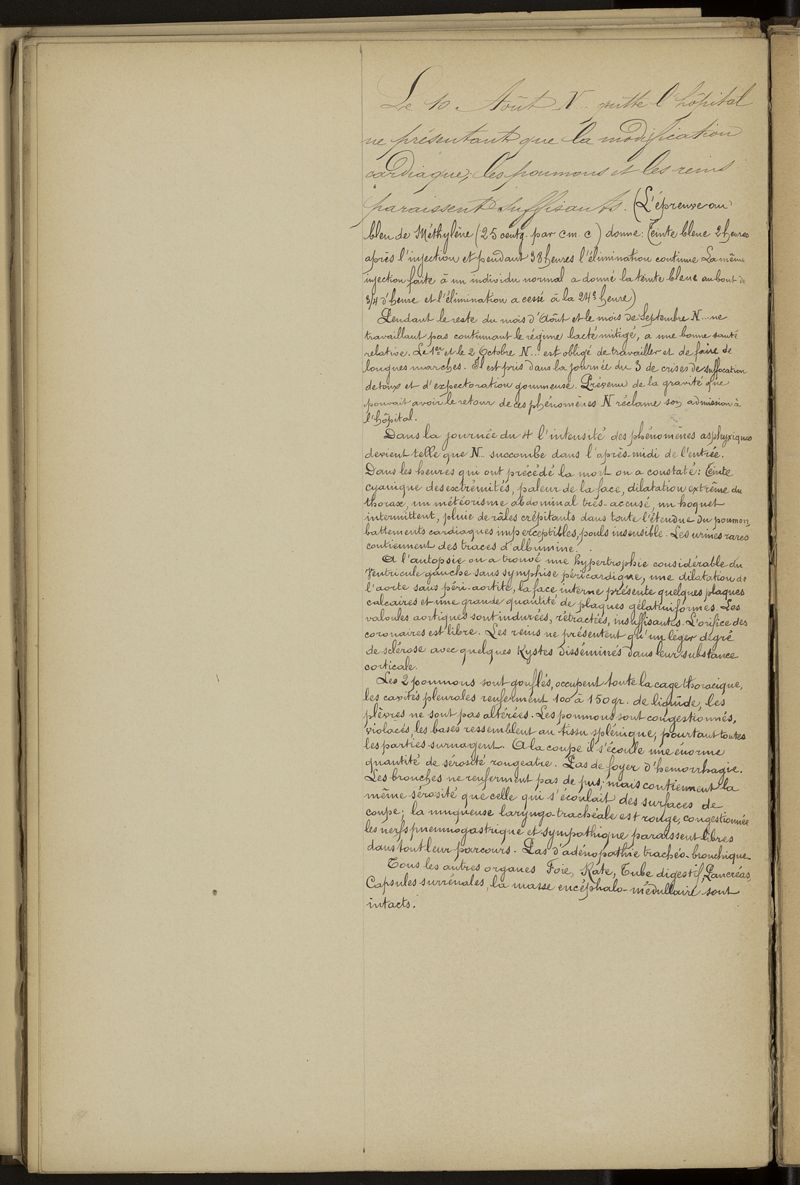 Le 10 Août N... quitte l'hôpital
ne présentant que la modification
cardiaque, les poumons et les reins
paraissent suffisants. (L'épreuve au
bleu de Méthylène (25 centg. par cm. c) donne: Teinte bleue 2 heures
après l'injection et pendant 38 heures l'élimination continue La même
injection faite à un individu normal a donné la teinte bleue au bout de
3/4 d'heure et l'élimination a cessé à la 24e heure)
Pendant le reste du mois d'Août et le mois de Septembre N... ne
travaillant pas continuant le régime lacté mitigé, a une bonne santé
relative. Le 1er et le 2 Octobre N... est obligé de travailler et de faire de
longues marches. Il est pris dans la journée du 3 de crises de suffocation
de toux et d'expectoration gommeuse. Prévenu de la gravité que
pouvait avoir le retour de ces phénomènes N réclame son admission à
l'hôpital.
Dans la journée du 4 l'intensité des phénomènes asphyxiques
devient telle que N... succombe dans l'après-midi de l'entrée.
Dans les heures qui ont précédé la mort on a constaté: Teinte
cyanique des extrémités, paleur de la face, dilatation extrême du
thorax, un météorisme abdominal très-accusé, un hoquet
intermittent, pluie de râles crépitants dans toute l'étendue du poumon,
battements cardiaques imperceptibles, pouls insensible. Les urines rares
contiennent des traces d'albumine.
A l'autopsie on a trouvé une hypertrophie considérable du
Ventricule gauche sans symphise péricardique, une dilatation de
l'aorte sans péri-aortite, la face interne présente quelques plaques
calcaires et une grande quantité de plaques gélatiniformes. Les
valvules aortiques sont indurées, rétractées, insuffisantes. L'orifice des
coronaires est libre. Les reins ne présentent qu'un léger dégré
de sclérose avec quelques Kystes disséminés dans leur substance
corticale.
Les 2 poumons sont gonflés, occupent toute la cage thoracique,
les cavités pleurales renferment 100 à 150 gr. de liquide, les
plèvres ne sont pas altérées. Les poumons sont congestionnés,
violacés, les bases ressemblent au tissu splénique, pourtant toutes
les parties surnagent. A la coupe il s'écoule une énorme
quantité de sérosité rougeatre. Pas de foyer d'hémorrhagie.
Les bronches ne renferment pas de pus, mais contiennent la
même sérosité que celle qui s'écoulait des surfaces de
coupe; la muqueuse laryngo-trachéale est rouge, congestionnée
les nerfs pneumogastrique et sympathique paraissent libres
dans tout leur parcours. Pas d'adénopathie trachéo-bronchique.
Tous les autres organes Foie, Rate, Tube digestif, Pancréas,
Capsules surrénales, la masse encéphalo-médullaire sont
intacts.